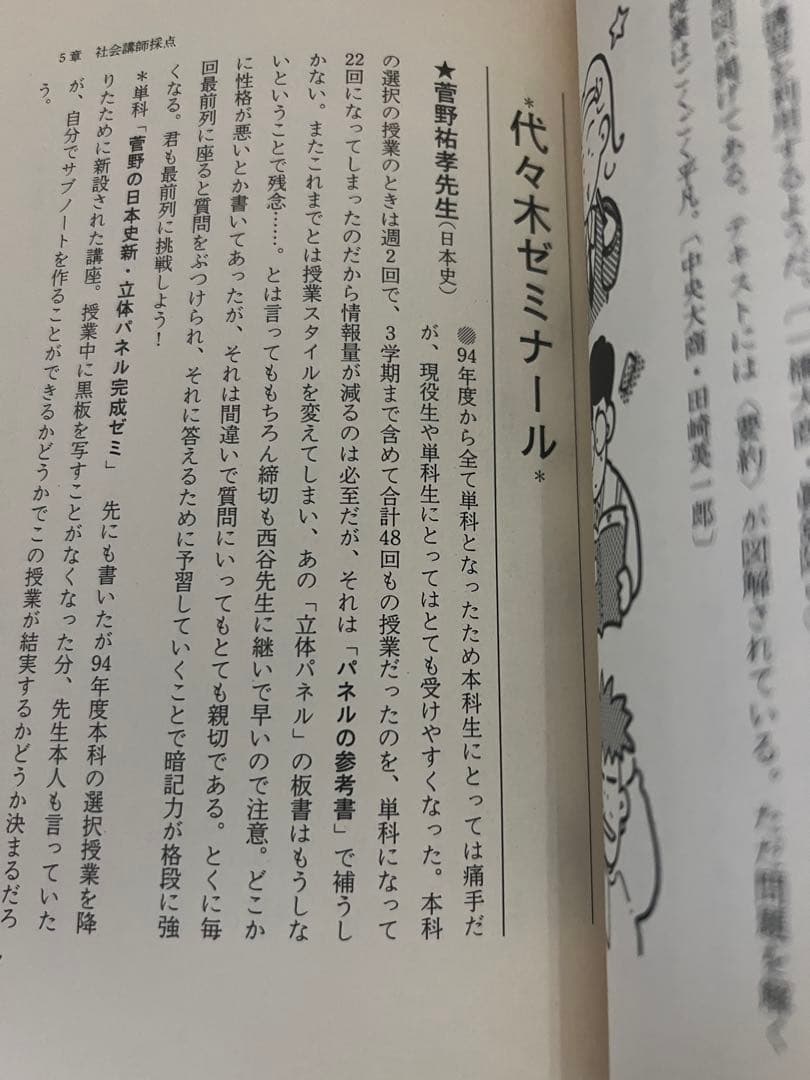 講習を利用するようだ。
図が掲げてある。テキストには〈要約〉が図解されている。ただ問題を解く
授業はごくごく平凡。(中央大商・田崎英一郎)
*代々木ゼミナール*
★菅野祐孝先生(日本史)
●94年度から全て単科となったため本科生にとっては痛手だ
が、現役生や単科生にとってはとても受けやすくなった。本科
の選択の授業のときは週2回で、3学期まで含めて合計48回もの授業だったのを、単科になって
22回になってしまったのだから情報量が減るのは必至だが、それは「パネルの参考書」で補うし
かない。またこれまでとは授業スタイルを変えてしまい、あの「立体パネル」の板書はもうしな
いということで残念……。とは言ってももちろん締切も西谷先生に継いで早いので注意。どこか
に性格が悪いとか書いてあったが、それは間違いで質問にいってもとても親切である。とくに毎
回最前列に座ると質問をぶつけられ、それに答えるために予習していくことで暗記力が格段に強
くなる。君も最前列に挑戦しよう!
*単科「菅野の日本史新・立体パネル完成ゼミ」 先にも書いたが94年度本科の選択授業を降
りたために新設された講座。授業中に黒板を写すことがなくなった分、先生本人も言っていた
が、自分でサブノートを作ることができるかどうかでこの授業が結実するかどうか決まるだろ
う。
5章 社会講師採点